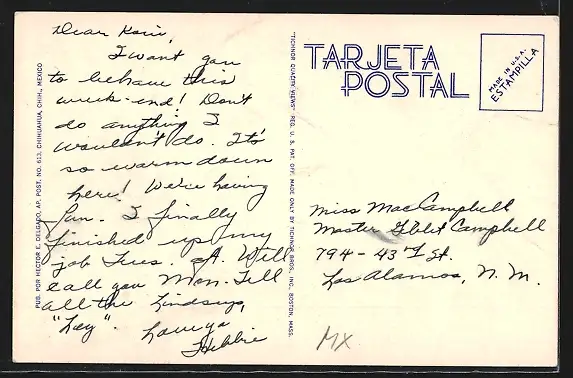 Dear Kori,
I want you
to behave this
week-end! Don't
do anything I
wouldn't do. It's
so warm down
here! We're having
fun. I finally
finished up my
job Tues. aft. Will
call you Mon. Tell
all the Lindsays,
"Hey".
Love ya
PUB. POR HECTOR E. DELGADO, AP. POST. NO. 613, CHIHUAHUA, CHIH., MEXICO
"TICHNOR QUALITY VIEWS" REG. U. S. PAT. OFF. MADE ONLY BY TICHNOR BROS. INC., BOSTON, MASS.
TARJETA
POSTAL
MADE IN U.S.A.
ESTAMPILLA
Miss Mac Campbell
Master Campbell
794-43rd St.
Los Alamos, N. M.
MX